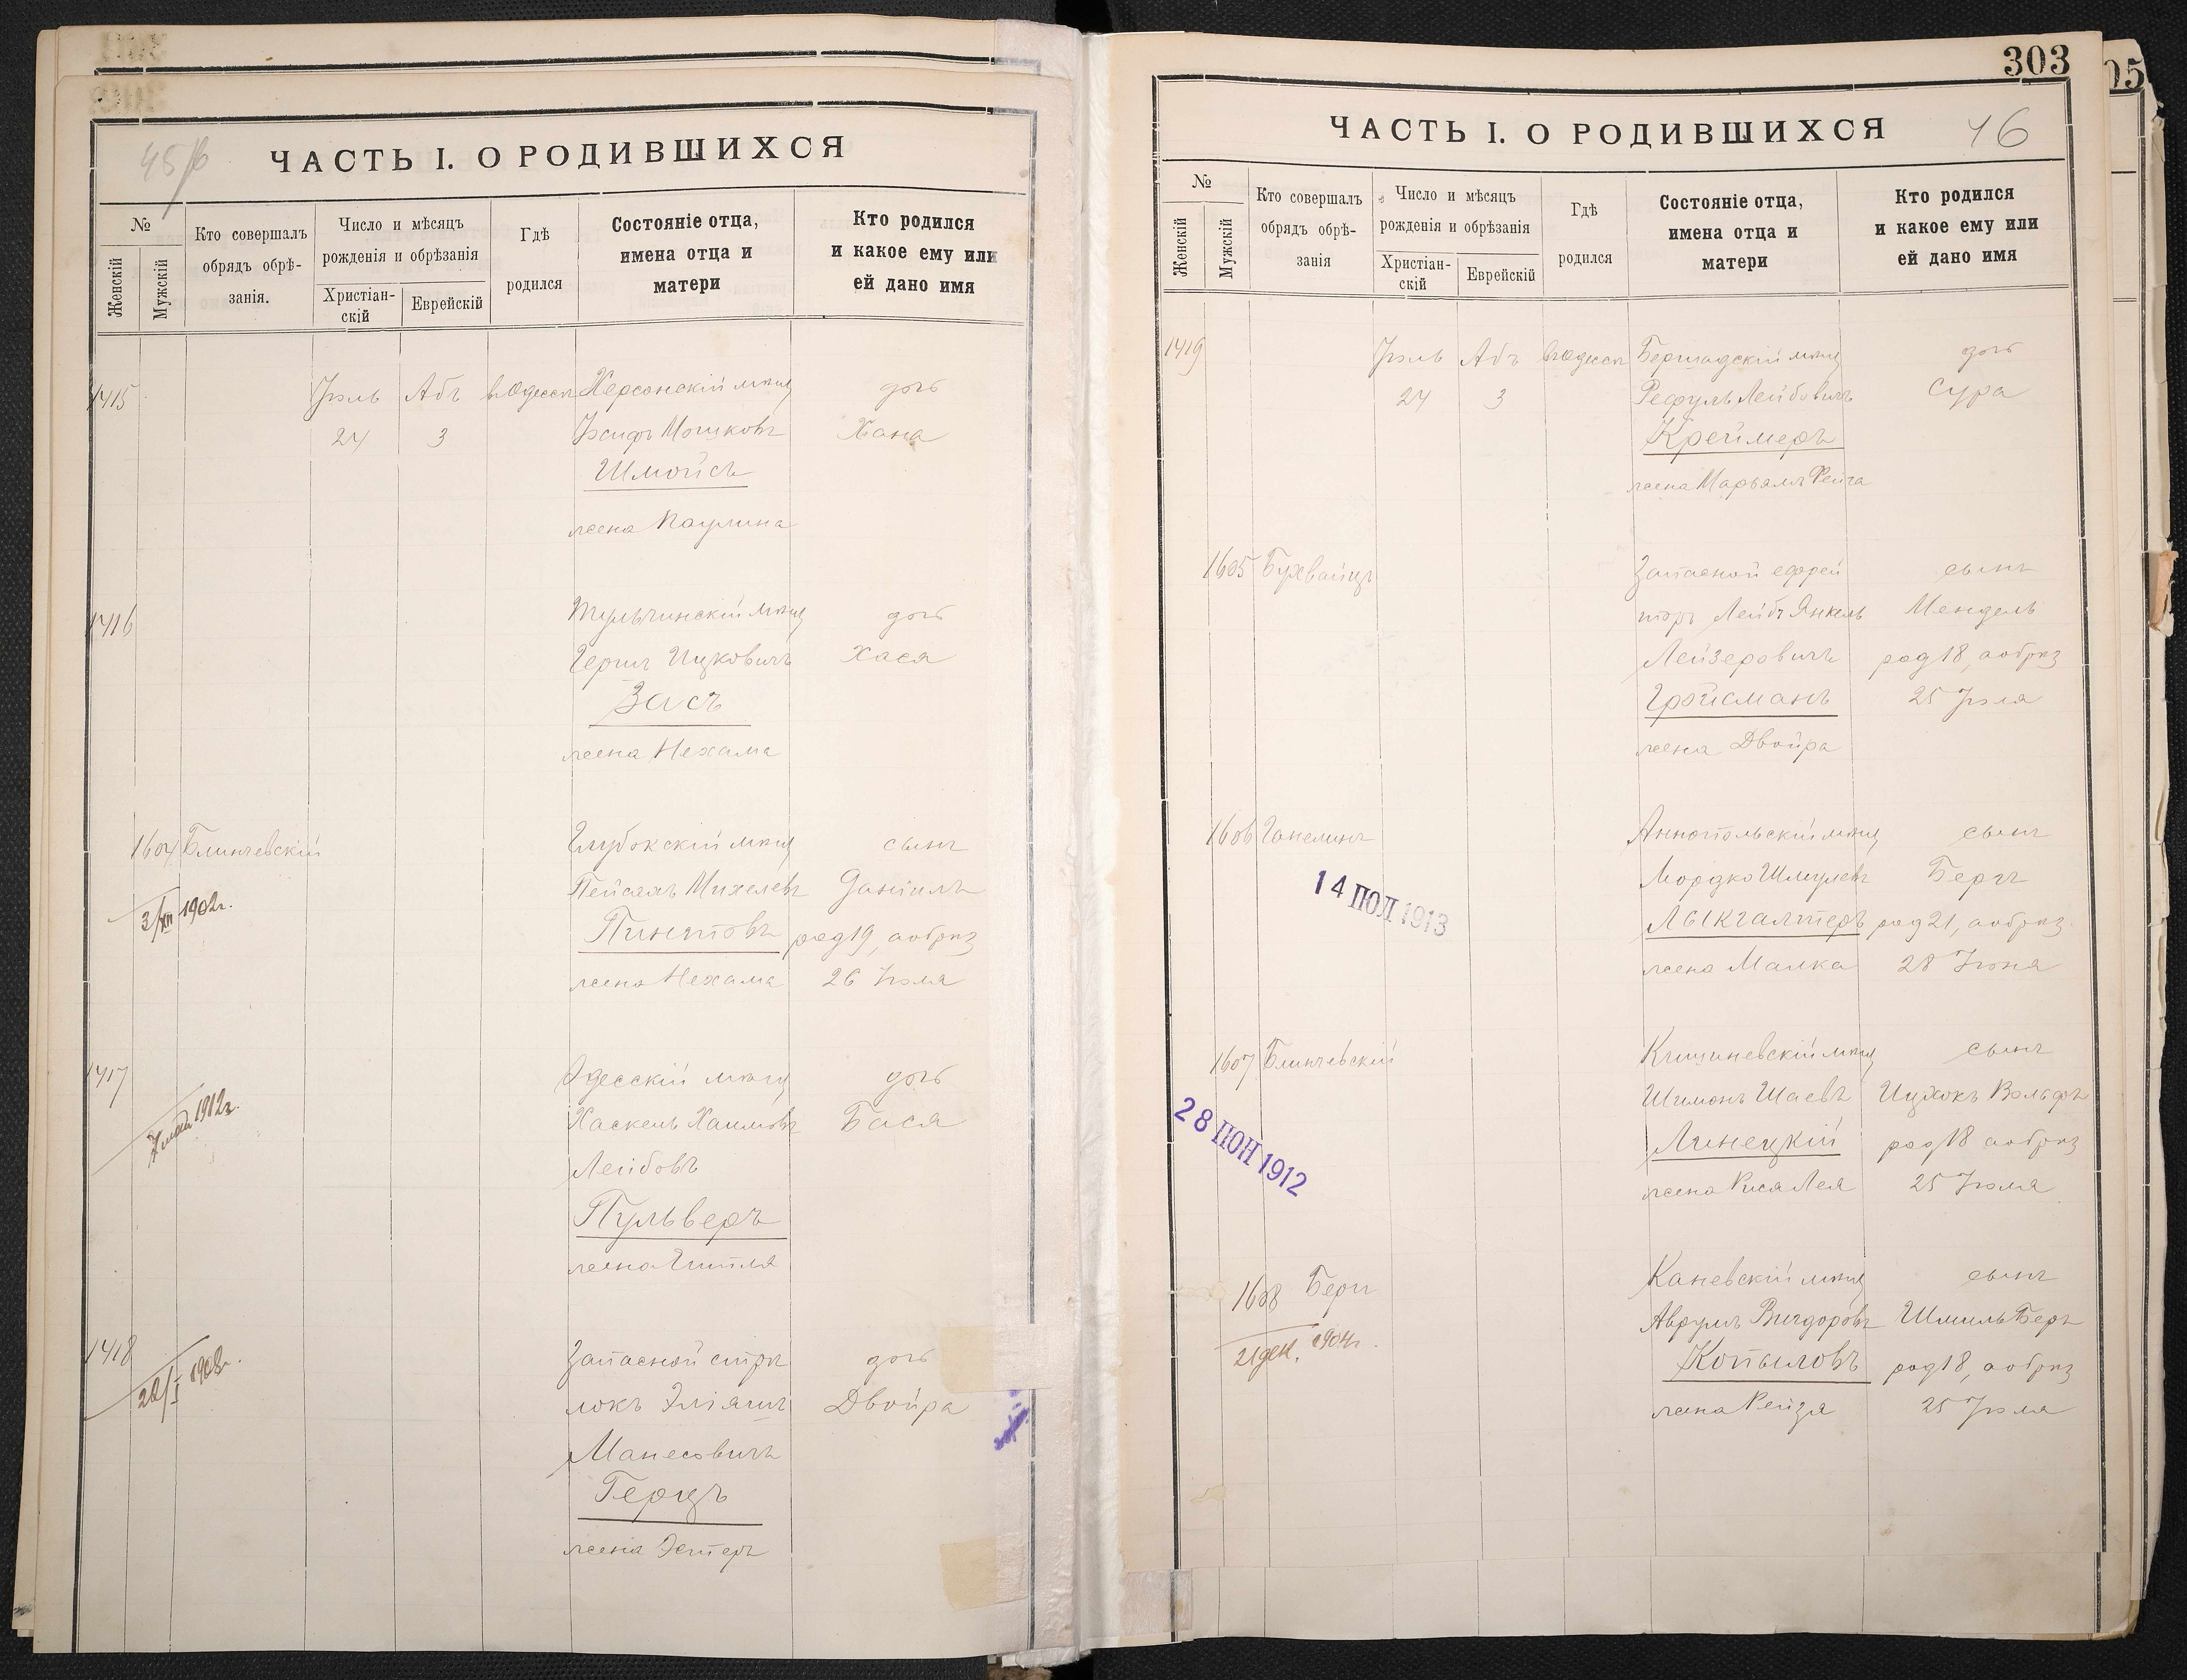 45 об
ЧАСТЬ I. О РОДИВШИХСЯ
№
Женскій
Мужскій
Кто совершалъ обрядъ обрѣ-занія.
Число и мѣсяцъ рожденія и обрѣзанія
Христіан-скій
Еврейскій
Гдѣ родился
Состояніе отца, имена отца и матери
Кто родился и какое ему или ей дано имя
1415 Іюль Абъ въ Одессѣ Херсонскій мѣщ дочь
24 3 Іосифъ Мошковъ Хана
Шмойсъ
жена Паулина
1416 Тульчинскій мѣщ дочь
Герш Ицковичъ Хася
Засъ
жена Нехама
1604 Блинчевскій Глубокскій мѣщ сынъ
Пейсахъ Михелевъ Даніилъ
3/XII 1902г.
Пинтовъ род 19, а обрѣз
жена Нехама 26 Іюля
1417 Одесскій мѣщ дочь
7 мая 1912г.
Хаскель Хаимовъ Бася
Лейбовъ
Пульверъ
жена Гитля
1418 Запасной стрѣ дочь
28/I 1908г.
локъ Эліяш Двойра
Манесовичъ
Герцъ
жена Эстеръ
303
ЧАСТЬ I. О РОДИВШИХСЯ
46
№
Женскій
Мужскій
Кто совершалъ обрядъ обрѣ-занія
Число и мѣсяцъ рожденія и обрѣзанія
Христіан-скій
Еврейскій
Гдѣ родился
Состояніе отца, имена отца и матери
Кто родился и какое ему или ей дано имя
1419 Іюль Абъ въ Одессѣ Бершадскій мѣщ дочь
24 3 Рефуль Лейбовичъ Сура
Креймеръ
жена Марьямъ Фейга
1605 Бухвайцъ Запасной ефрей сынъ
торъ Лейбъ Янкель Мендель
Лейзеровичъ род 18, а обрѣз
Гройсманъ 25 Іюля
жена Двойра
1606 Ганелинъ Аннопольскій мѣщ сынъ
14 ПОЛ 1913
Мордко Шмулевъ Беръ
Лыкгалтеръ род 21, а обрѣз.
жена Малка 28 Іюня
1607 Блинчевскій Кишиневскій мѣщ сынъ
28 ПОН 1912
Шимонъ Шаевъ Ицхокъ Вольфъ
Линецкій род 18 а обрѣз
жена Рися Лея 25 Іюля
1608 Берш Каневскій мѣщ сынъ
Аврумъ Вигдоровъ Шмиль Беръ
21 дек. 1904г.
Копыловъ род 18, а обрѣз
жена Рейзя 25 Іюля
05